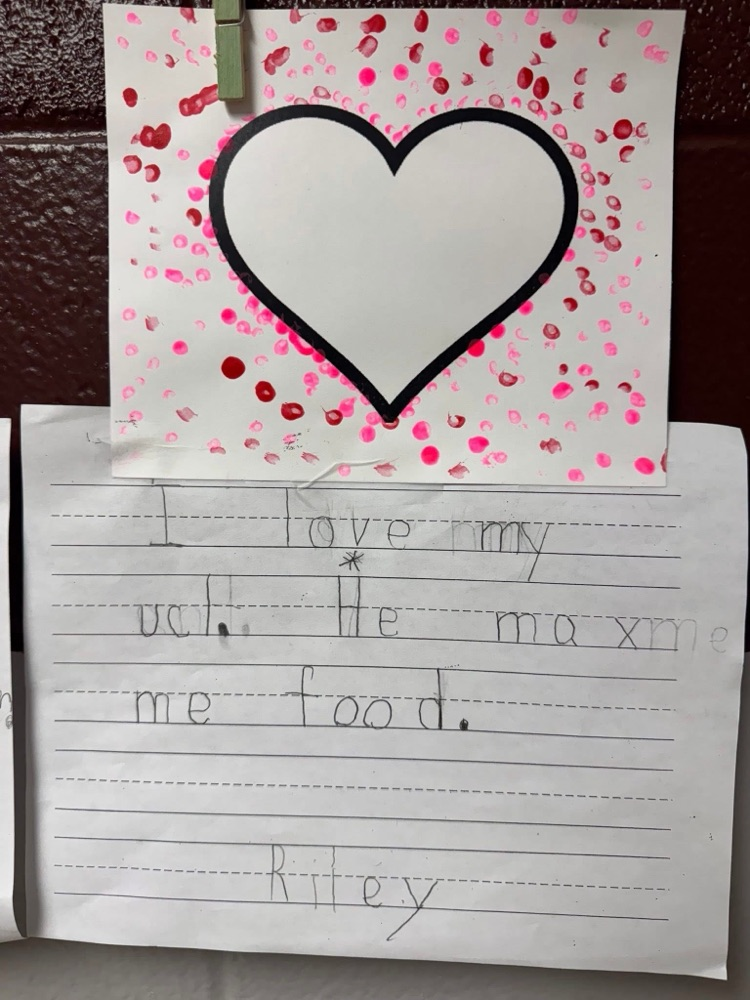 I love my
*
ucl. He maxme
me food.
Riley